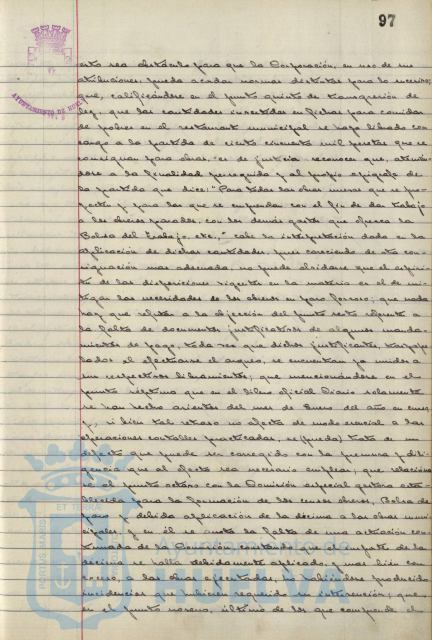 97
esto sea obstáculo para que la Corporación, en uso de sus
atribuciones, pueda acordar normas distintas para lo sucesivo;
que, calificándose en el punto quinto de transgresión de
ley, que las cantidades invertidas en fichas para comidas
de pobres en el restaurant municipal se haya librado con
cargo a la partida de ciento cincuenta mil pesetas que se
consignan para obras, es de justicia reconocer que, atendién-
dose a la finalidad perseguida y al propio epígrafe de
la partida que dice: "Para todas las obras nuevas que se pro-
yecten y para las que se emprendan con el fin de dar trabajo
a los obreros parados, con los demás gastos que ofrezca la
Bolsa del Trabajo, etc.," cabe la interpretación dada en la
aplicación de dichas cantidades, pues careciendo de otra con-
signación mas adecuada, no puede olvidarse que el espíri-
tu de las disposiciones vigentes en la materia es el de mi-
tigar las necesidades de los obreros en paro forzoso; que nada
hay que refutar a la objeción del punto sexto referente a
la falta de documentos justificativos de algunos manda-
mientos de pago, toda vez que dichos justificantes,
al efectuarse el arqueo, se encuentran ya unidos a
sus respectivos libramientos; que mencionándose en el
punto séptimo que en el libro oficial Diario solamente
se han hecho asientos del mes de Enero del año en curso,
y, si bien tal retraso no afecta de modo esencial a las
operaciones contables practicadas, se (pueda) trata de un
defecto que puede ser corregido con la premura y dili-
gencia que al efecto sea necesario emplear; que relaciona
el punto octavo con la Comisión especial gestora esta-
blecida para la formación de los censos obreros, Bolsa de
paro y debida aplicación de la décima a las obras muni-
cipales y en él se anota la falta de una actuación con-
tinuada de la Comisión, estando que el importe de la
décima se halla debidamente aplicado, y mas bien con
exceso, a las obras ejecutadas, no habiéndose producido
incidencias que hubiesen requerido su intervención; que
en el punto noveno, último de los que comprende el
AYUNTAMIENTO DE HUELVA
ET TERRÆ
PORTUS MARIS
Ayuntamiento de
HUELVA